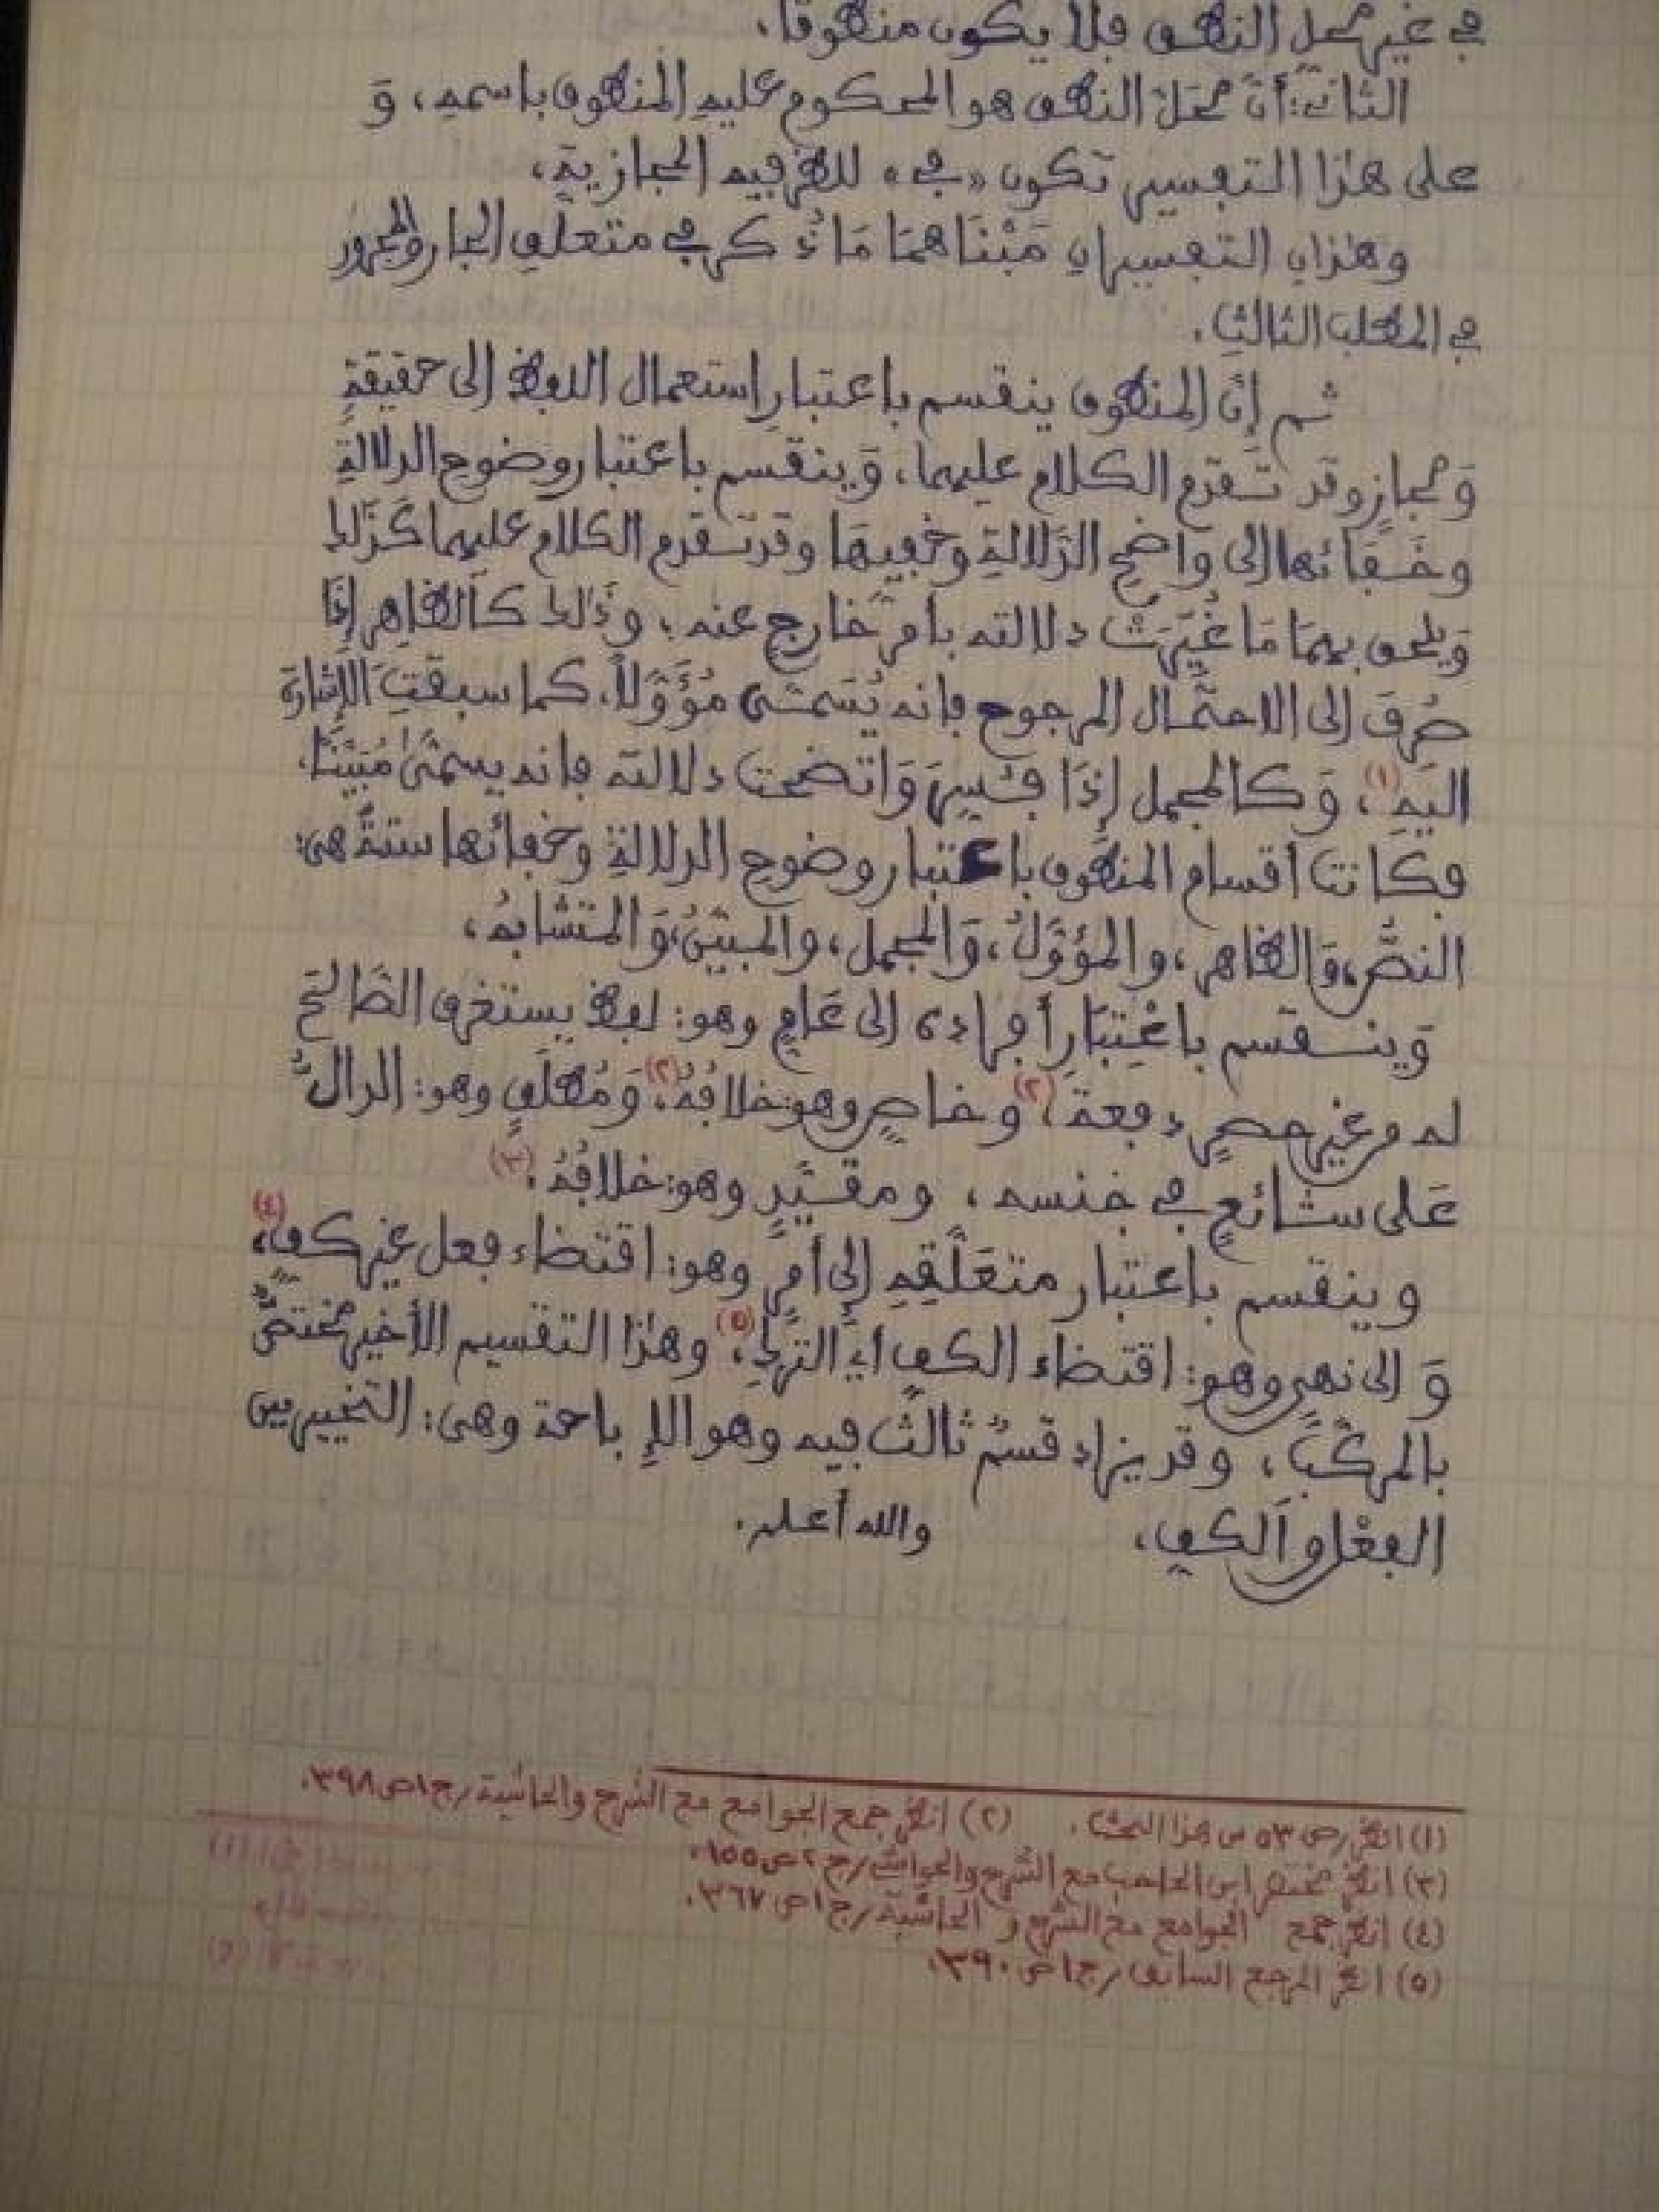 في غير محل النطق فلا يكون منطوقا.
الثاني: أنّ محلّ النطق هو المحكوم عليه المنطوق باسمه، وَ
على هذا التفسير تكون «في» للظرفيه المجازية،
وهٰذان التفسيران مَبْنَاهمَا مَا ذُكر في متعلق الجار والمجرور
في المطلب الثالث.
ثم إنّ المنطوق ينقسم باعتبارِ استعمال اللفظ إلى حقيقةٍ
وَمجازٍ وقد تَقدم الكلام عليهما، وَينقسم باعتبار وضوح الدلالةِ
وخَفَائها إلى وَاضحِ الدَّلالةِ وخفيهَا وقد تقدم الكلام عليهما كَذَلك
وَيلحق بهمَا مَا غُيِّرَتْ دلالته بأمرٍ خَارجٍ عنه، وذَٰلك كالظاهِر إذَا
صُرِفَ إلى الاحتمَال المرجوح فإنه يُسَمَّى مُؤَوَّلاً، كما سبقتِ الإشارة
اليهِ (١)، وَكالمجمل إذَا فُسِّرَ وَاتضحت دلالته فإنه يسمَّىٰ مُبَيَّنًا.
فكانت أقسام المنطوق باعتبار وضوحِ الدلالةِ وخفائها ستةٌ هى:
النصُّ، وَالظاهر، والمؤوَّلُ، وَالمجمل، والمبيَّنُ، وَالمتشابهُ،
وَينقسم باعْتِبَارِ أفراده إلى عَامٍ وهو: لفظ يستغرق الصَّالحَ
له من غير حصرٍ دفعة، (٢) وخاصٍ وهو: خلافُهُ، (٢) وَمُطلَقٍ وهو: الدالُّ
عَلى شائعٍ في جنسه، ومقيَّدٍ وهو: خلافُهُ. (٣)
وينقسم باعتبار متعَلَّقِهِ إلى أمرٍ وهو: اقتضاء فعل غير كفٍ، (٤)
وَإلى نهي وهو: اقتضاء الكفِ أي التركِ، (٥) وهٰذا التقسيم الأخير مختصٌّ
بالمركَّبِ، وقد يزاد قسمٌ ثالثٌ فيه وهو الإباحة وهى: التخيير بين
الفعْل وَالكفِ، والله أعلم.
(١) انظر ص ٥٣ من هذا البحث. (٢) انظر جمع الجوامع مع الشرح والحاشية ج ١ ص ٣٩٨.
(٣) انظر مختصر ابن الحاجب مع الشرح والحواشي ج ٢ ص ١٥٥.
(٤) انظر جمع الجوامع مع الشرح والحاشية ج ١ ص ٣٦٧.
(٥) انظر المرجع السابق ج ١ ص ٣٩٠.